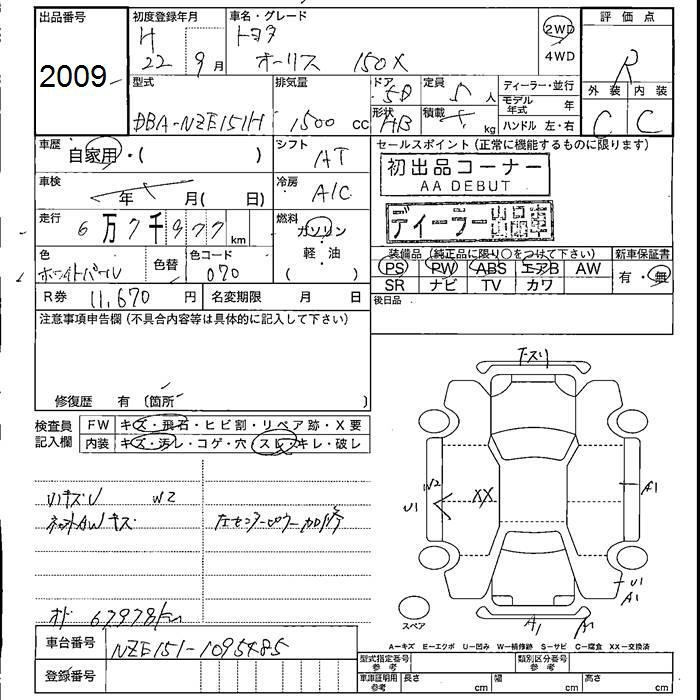 出品番号
2009
初度登録年月
H
22 9月
車名・グレード
トヨタ
オーリス 150X
2WD
4WD
評価点
R
外装 内装
C C
型式
DBA-NZE151H
排気量
1500 cc
ドア
5D
形状
HB
定員
5 人
積載
kg
ディーラー・並行
モデル年式 年
ハンドル 左・右
車歴
自家用・( )
シフト
AT
車検
年 月( 日)
冷房
A/C
走行
6万7千977km
燃料
ガソリン
軽・油
( )
色
ホワイトパール
色替
色コード
070
R券 11,670 円
名変期限 月 日
セールスポイント(正常に機能するものに限ります)
初出品コーナー
AA DEBUT
ディーラー出品車
装備品(純正品に限り○をつけて下さい)
PS PW ABS エアB AW
SR ナビ TV カワ
新車保証書
有・無
後日品
注意事項申告欄(不具合内容等は具体的に記入して下さい)
修復歴 有 〔箇所 〕
検査員
記入欄
FW キズ・飛石・ヒビ割・リペア跡・X要
内装 キズ・汚レ・コゲ・穴 スレ・キレ・破レ
W2
キズ
左センターピラー加修
67978km
車台番号
NZE151-1095485
登録番号
W2
U1
XX
A1
U1
A1
A1
スペア
A=キズ E=エクボ U=凹み W=補修跡 S=サビ C=腐食 XX=交換済
型式指定番号
参考
類別区分番号
参考
車庫証明用
参考
長さ cm
幅 cm
高さ cm